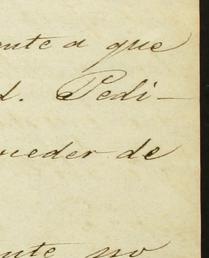 ente a que
d. Pedi-
ceder de
ente no